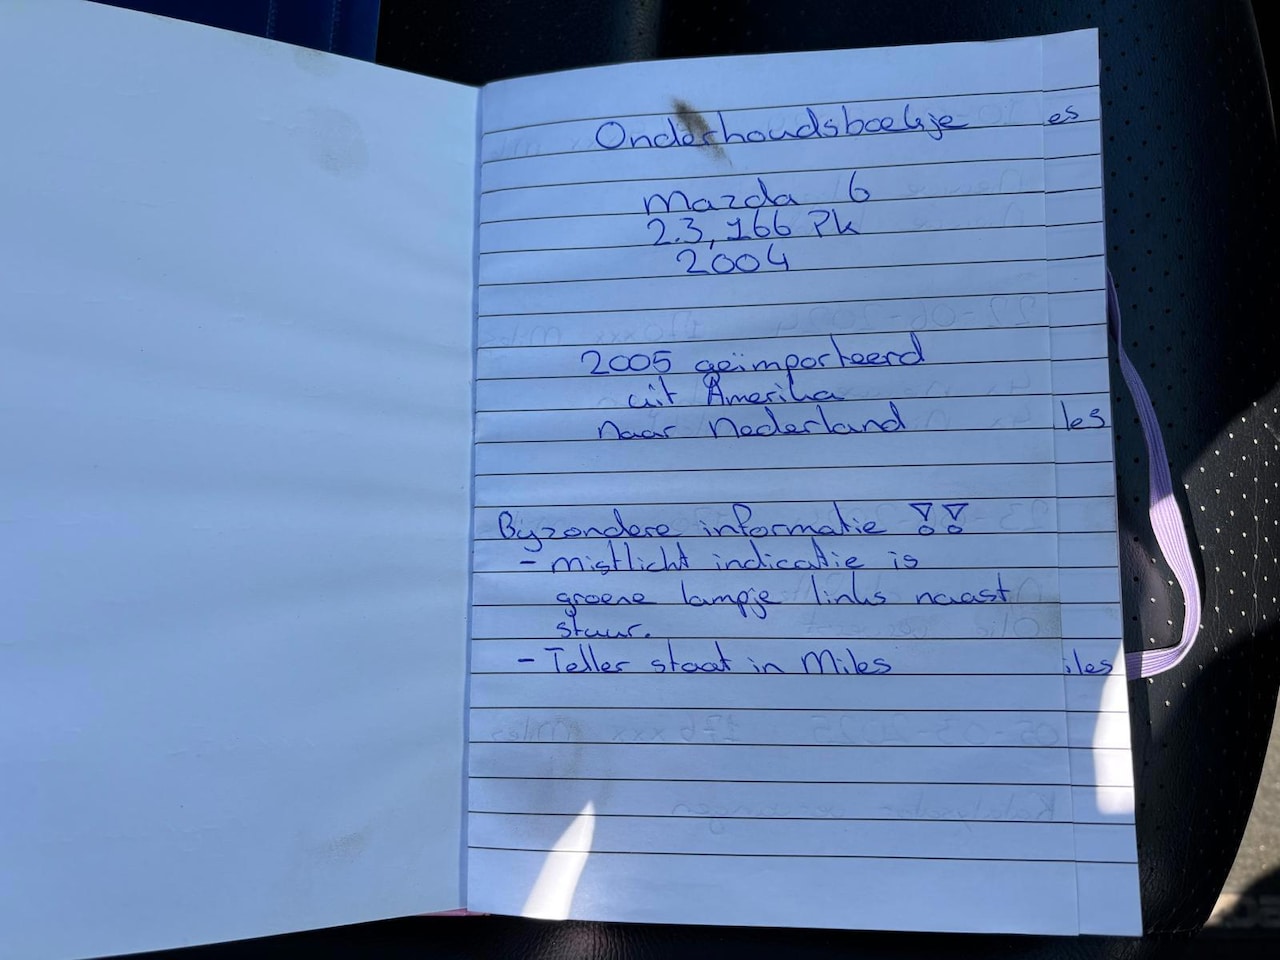 Onderhoudsboekje
es
Mazda 6
2.3, 166 Pk
2004
2005 geïmporteerd
uit Amerika
naar Nederland
les
Byzondere informatie !!
- Mistlicht indicatie is
groene lampje links naast
stuur.
- Teller staat in Miles
iles